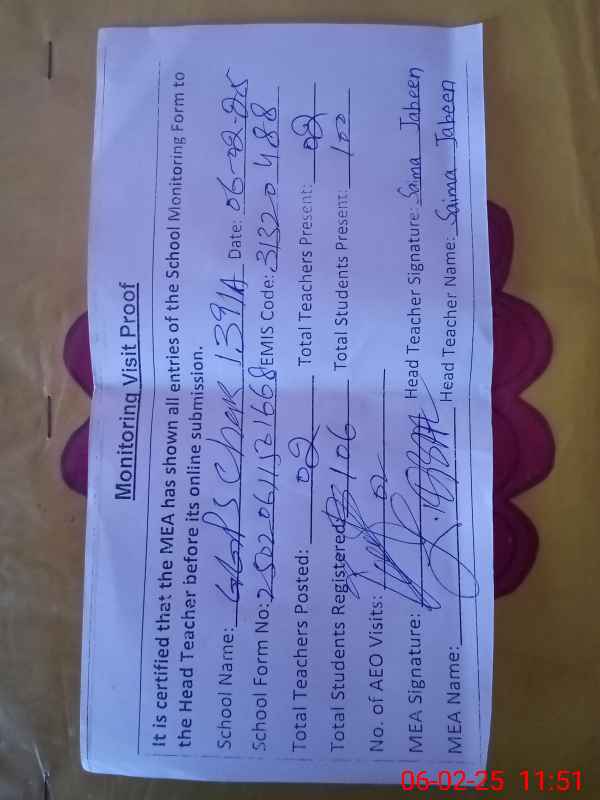 Monitoring Visit Proof
It is certified that the MEA has shown all entries of the School Monitoring Form to
the Head Teacher before its online submission.
School Name: GGPS Chak 139/1A Date: 06-02-25
School Form No: EMIS Code: 31320488
Total Teachers Posted: 02 Total Teachers Present: 02
Total Students Registered: 106 Total Students Present: 100
No. of AEO Visits: 02
MEA Signature: Head Teacher Signature: Saima Jabeen
MEA Name: Head Teacher Name: Saima Jabeen
06-02-25 11:51